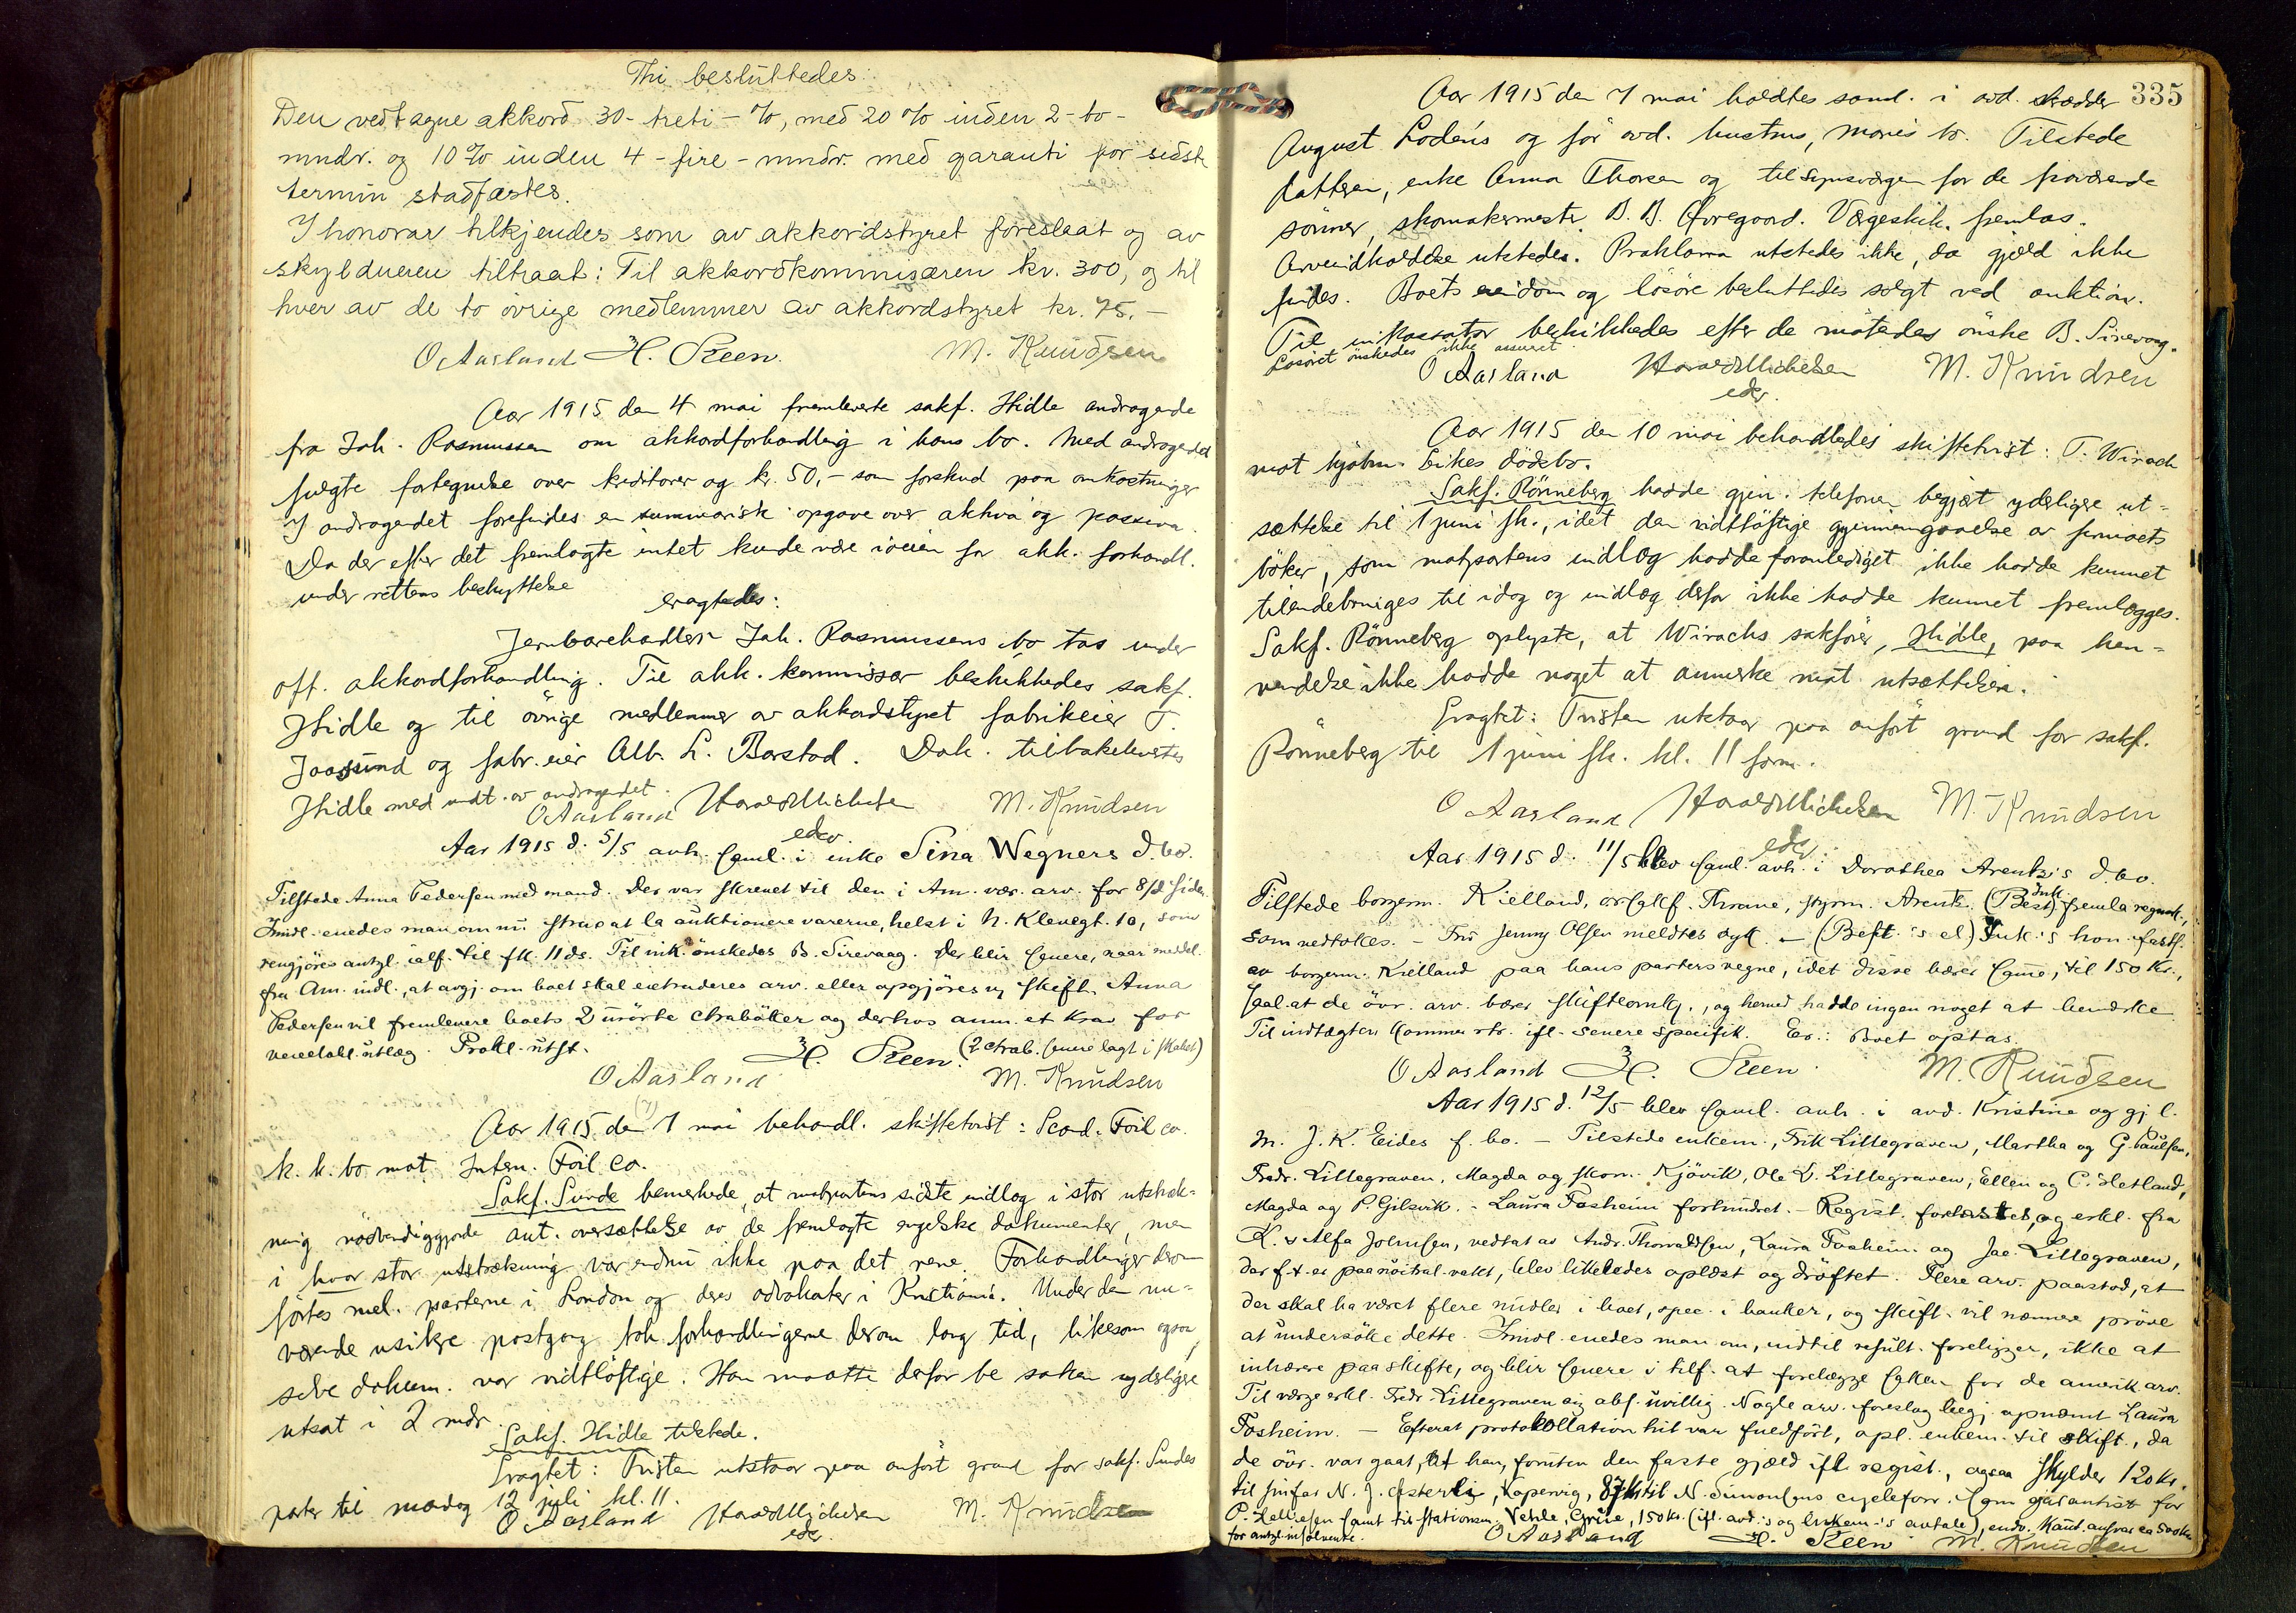 Thi besluttedes:
Den vedtagne akkord 30 - treti - %, med 20 % inden 2 - to -
mndr. og 10 % inden 4 - fire - mndr. med garanti for sidste
termin stadfæstes.
I honorar tilkjendes som av akkordstyret foreslaat og av
skyldneren tiltraat: Til akkordkommisæren kr. 300, og til
hver av de to øvrige medlemmer av akkordstyret kr. 75. -
O Aasland H. Steen. M. Knudsen
Aar 1915 den 4 mai fremleverte sakf. Hidle andragende
fra Joh. Rasmussen om akkordforhandling i hans bo. Med andragendet
fulgte fortegnelse over kreditorer og kr. 50,- som forskud paa omkostninger
I andragendet forefindes en summarisk opgave over aktiva og passiva.
Da der efter det fremlagte intet kunde være iveien for akk. forhandl.
under rettens beskyttelse
eragtedes:
Jernvarehandler Joh. Rasmussens bo tas under
off. akkordforhandling. Til akk. kommissær beskikkedes sakf.
Hidle og til övrige medlemmer av akkordstyret fabrikeier T.
Jaasund og fabr. eier Alb. L. Barstad. Dok. tilbakelevertes
Hidle med undt. av andragendet.
O Aasland Harald Michelsen M. Knudsen
edsv.
Aar 1915 d. 5/5 avh. saml. i enke Sina Wegners d.bo.
Tilstede Anna Pedersen med mand. Der var skrevet til den i Am. vær. arv. for 8/d siden.
Imidl. enedes man om nu straks at la auktionere varerne, helst i N. Klevegt. 10, som
rengjöres antgl. ialf. til fk. 11 ds. Til ink. önskedes B. Sirevaag. Der blir senere, naar meddel.
fra Am. indl., at avgj. om boet skal extraderes arv. eller opgjöres v. skift. Anna
Pedersen vil fremlevere boets 2 bankböker og derhos anm. et krav for
vedkl. utlæg. Prokl. utst. (2 senere lagt i skabet)
O Aasland H. Steen. M. Knudsen
Aar 1915 den 7 mai behandl. skiftetvist: Scand. Foil co.
k. k. bo mot Intern. Foil Co.
Sakf. Sunde bemerkede, at motpartens sidste indlæg i stor utstræk-
ning nödvendiggjorde aut. oversættelse av de fremlagte engelske dokumenter, men
i hvor stor utstrækning var endnu ikke paa det rene. Forhandlinger derom
förtes mel. parterne i London og deres advokater i Kristiania. Under den nu-
værende usikre postgang tok forhandlingerne derom lang tid, likesom ogsaa
selve dokum. var vidtlöftige. Han maatte derfor be saken yderligere
utsat i 2 mdr.
Sakf. Hidle tilstede.
Eragtet: Tvisten utstaar paa anfört grund for sakf. Sundes
parter til mandag 12 juli kl. 11.
O Aasland Harald Michelsen M. Knudsen
edsv.
335
Aar 1915 den 7 mai holdtes saml. i avd. skrædder
August Lodens og för avd. hustrus, Maries bo. Tilstede
datteren, enke Anna Thorsen og tilsynsvergen for de fraværende
sönner, skomakermester B. B. Övregaard. Værgeskik. fremlas.
Arveindkaldelse utstedes. Proklama utstedes ikke, da gjæld ikke
findes. Boets eiendom og lösöre besluttedes solgt ved auktion.
Til inkassator beskikkedes efter de mötendes önske B. Sirevaag.
Lösöret önskedes ikke assurert.
O Aasland Harald Michelsen M. Knudsen
edsv.
Aar 1915 den 10 mai behandledes skiftetvist: T. Wirach
mot kjöbm. Eikes dödsbo.
Sakf. Rönneberg hadde gjen. telefonen begjært yderligere ut-
sættelse til 1 juni fk., idet den vidtlöftige gjennemgaaelse av firmaets
böker, som motpartens indlæg hadde foranlediget ikke hadde kunnet
tilendebringes til idag og indlæg derfor ikke hadde kunnet fremlægges.
Sakf. Rönneberg oplyste, at Wirachs sakförer, Hidle, paa hen-
vendelse ikke hadde noget at anmerke mot utsættelsen.
Eragtet: Tvisten utstaar paa anfört grund for sakf.
Rönneberg til 1 juni fk. kl. 11 form.
O Aasland Harald Michelsen M. Knudsen
edsv.
Aar 1915 d. 11/5 blev saml. avh. i Dorothea Arentz's d.bo.
Tilstede borgerm. Kielland, orsakf. Thrane, styrm. Arentz. (Best) Ink. fremla regnsk.,
som vedtokes. - Frö Jenny Olsen meldtes syk. - (Best.'s el.) Ink.'s hon. fasts.
av borgerm. Kielland paa hans parters vegne, idet disse bærer samme, til 150 Kr.,
saal. at de övr. arv. bærer skifteomk., og herved hadde ingen noget at bemerke
Til indtægten kommer rtr. ifl. senere specifik. Er.: Boet optas.
O Aasland H. Steen. M. Knudsen
Aar 1915 d. 12/5 blev saml. avh. i avd. Kristine og gj. l.
m. J. K. Eides f. bo. - Tilstede enkem., Erik Lillegraven, Martha og G. Paulsen,
Fredr. Lillegraven, Magda og skom. Kjövik, Ole L. Lillegraven, Ellen og C. Hetland,
Magda og P. Gilsvik. - Laura Fosheim forhindret. - Regist. forelæstes, og erkl. fra
K. & Alfa Johnsen, vedtat av Andr. Thorvaldsen, Laura Fosheim og Jac. Lillegraven,
der f.t. er paa nöitral.vakt, blev likeledes oplæst og dröftet. Flere arv. paastod, at
der skal ha været flere midler i boet, spec. i banker, og skift. vil nærmere pröve
at undersöke dette. Imidl. enedes man om, indtil result. foreligger, ikke at
inhærere paa skifte, og blir senere i tilf. at forelægge saken for de amerik. arv.
Til værge erkl. Fredr. Lillegraven sig abs. uvillig. Nogle arv. foreslog begj. opnævnt Laura
Fosheim. - Efterat protokollation hit var fuldfört, opl. enkem. til skift., da
de övr. var gaat, at han, foruten den faste gjæld ifl. regist., ogsaa skylder 120 kr.
til snfør N. J. Østervig, Kopervig, 87 kr til N. Simonsens cycleforr. som garantist for
P. samt til stationsm. Vetrhe, Grue, 150 kr. (ifl. avd.'s og enkem.'s avtale), endv. kaut. ansvar ca 500 kr
for antgl. insolvente. O Aasland H. Steen M. Knudsen